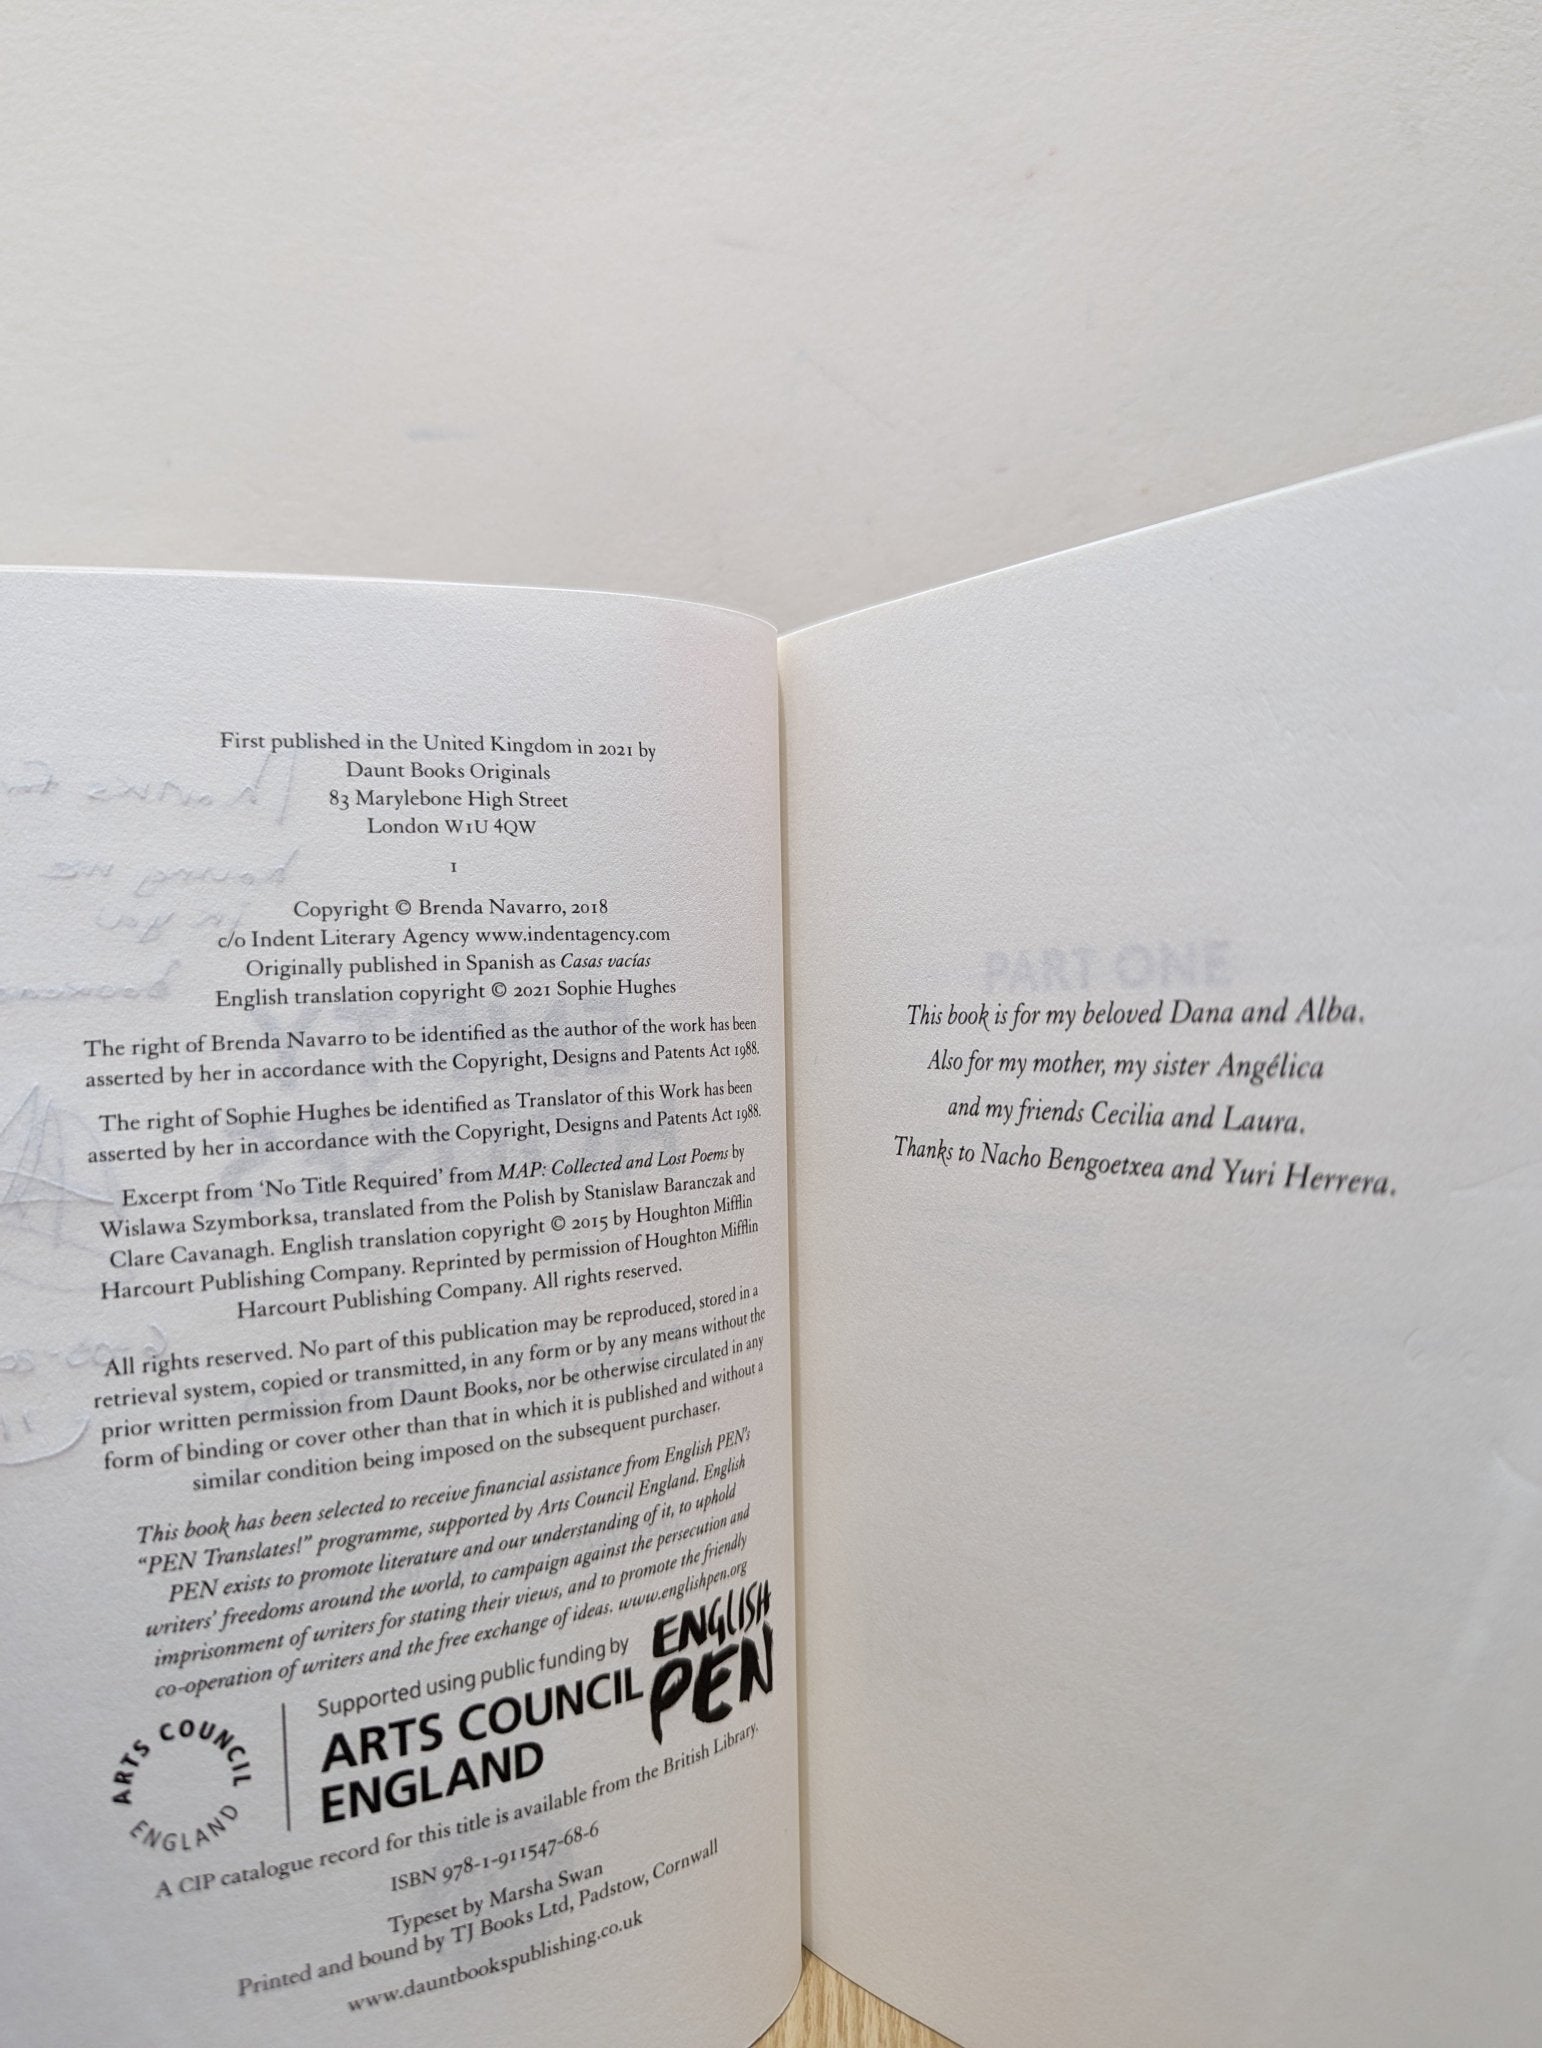 First published in the United Kingdom in 2021 by
Daunt Books Originals
83 Marylebone High Street
London W1U 4QW
1
Copyright © Brenda Navarro, 2018
c/o Indent Literary Agency www.indentagency.com
Originally published in Spanish as Casas vacías
English translation copyright © 2021 Sophie Hughes
The right of Brenda Navarro to be identified as the author of the work has been
asserted by her in accordance with the Copyright, Designs and Patents Act 1988.
The right of Sophie Hughes be identified as Translator of this Work has been
asserted by her in accordance with the Copyright, Designs and Patents Act 1988.
Excerpt from ‘No Title Required’ from MAP: Collected and Lost Poems by
Wislawa Szymborksa, translated from the Polish by Stanislaw Baranczak and
Clare Cavanagh. English translation copyright © 2015 by Houghton Mifflin
Harcourt Publishing Company. Reprinted by permission of Houghton Mifflin
Harcourt Publishing Company. All rights reserved.
All rights reserved. No part of this publication may be reproduced, stored in a
retrieval system, copied or transmitted, in any form or by any means without the
prior written permission from Daunt Books, nor be otherwise circulated in any
form of binding or cover other than that in which it is published and without a
similar condition being imposed on the subsequent purchaser.
This book has been selected to receive financial assistance from English PEN’s
“PEN Translates!” programme, supported by Arts Council England. English
PEN exists to promote literature and our understanding of it, to uphold
writers’ freedoms around the world, to campaign against the persecution and
imprisonment of writers for stating their views, and to promote the friendly
co-operation of writers and the free exchange of ideas. www.englishpen.org
ARTS COUNCIL ENGLAND
Supported using public funding by
ARTS COUNCIL
ENGLAND
ENGLISH
PEN
A CIP catalogue record for this title is available from the British Library.
ISBN 978-1-911547-68-6
Typeset by Marsha Swan
Printed and bound by TJ Books Ltd, Padstow, Cornwall
www.dauntbookspublishing.co.uk
PART ONE
This book is for my beloved Dana and Alba.
Also for my mother, my sister Angélica
and my friends Cecilia and Laura.
Thanks to Nacho Bengoetxea and Yuri Herrera.